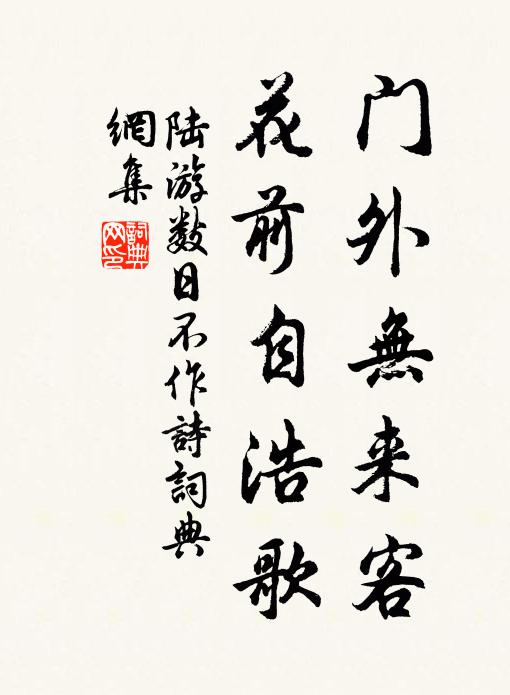 门外無来客
花前自浩歌
陆游数日不作詩詞典
網集
詞典
网印